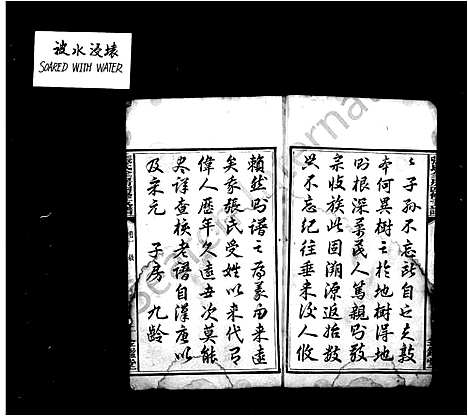 被水浸壞
SOARED WITH WATER
之子孫不忘所自之大鼓
本何異樹之於地樹得地
則根深蒂茂人篤親則敬
宗收族此固溯源返始數
典不忘紀往垂来後人攸
賴然則譜之為義由来遠
矣我張氏受姓以来代有
偉人歷年久遠世次莫能
尽詳查核老譜自漢唐以
及宋元 子房 九齡